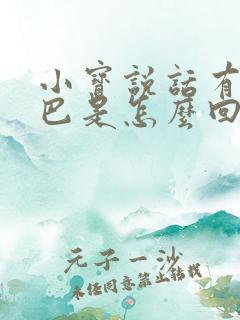 小寶説話有
巴是怎麼回
元子一沙
未经同意禁止转载